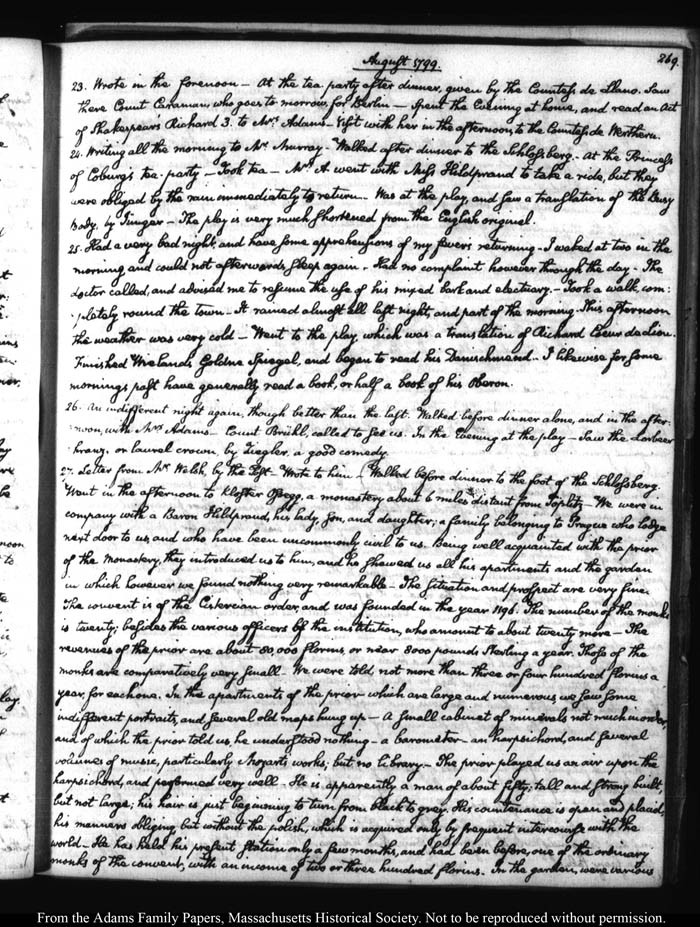 August 1799.
269.
23. Wrote in the forenoon — At the tea party after dinner, given by the Countess de Llano. Saw
there Count Caraman, who goes to morrow, for Berlin — Spent the Evening at home, and read an Act
of Shakespear's Richard 3. to Mrs. Adams — Visit with her in the afternoon, to the Countess de Werthern.
24. Writing all the morning to Mr. Murray — Walked after dinner to the Schlossberg — At the Princess
of Coburg's tea-party — Took tea — Mrs. A. went with Miss Hildprand to take a ride, but they
were obliged by the rain immediately to return — Was at the play, and saw a translation of the Busy
Body, by Jünger — The play is very much shortened from the English original.
25. Had a very bad night, and have some apprehensions of my fever's returning — I waked at two in the
morning and could not afterwards sleep again. Had no complaint however through the day — The
doctor called, and advised me to resume the use of his mixed bark and electuary. — Took a walk, com:
:pletely round the town — It rained almost all last night, and part of the morning. This afternoon
the weather was very cold — Went to the play, which was a translation of Richard Coeur de Lion.
Finished Wielands Goldne Spiegel, and began to read his Danischmend — I likewise for some
mornings past have generally read a book, or half a book of his Oberon.
26. An indifferent night again, though better than the last. Walked before dinner alone, and in the after-
noon, with Mrs. Adams — Count Brühl, called to see us. In the Evening at the play — Saw the Lorbeer
kranz, or laurel crown, by Ziegler, a good comedy.
27. Letter from Mr. Welsh, by the Post — Wrote to him — Walked before dinner to the foot of the Schlossberg.
Went in the afternoon to Kloster Ossegg, a monastery about 6 miles distant from Töplitz — We were in
company with a Baron Hildprand, his lady, son, and daughter; a family belonging to Prague who lodge
next door to us, and who have been uncommonly civil to us. Being well acquainted with the prior
of the monastery, they introduced us to him, and he shewed us all his apartments and the garden
in which however we found nothing very remarkable — The situation and prospect are very fine.
The convent is of the Cistercian order, and was founded in the year 1196. The number of the monks
is twenty; besides the various officers of the institution, who amount to about twenty more — The
revenues of the prior are about 80,000 florins, or near 8000 pounds Sterling a year. Those of the
monks are comparatively very small — We were told not more than three or four hundred florins a
year, for each one. In the apartments of the prior which are large and numerous, we saw some
indifferent portraits, and several old maps hung up — A small cabinet of minerals not much
and of which the prior told us he understood nothing — a barometer — an harpsichord, and several
volumes of music, particularly Mozart's works; but no Library — The prior played us an air upon the
harpsichord, and performed very well — He is apparently a man of about fifty; tall and strong built,
but not large; his hair is just beginning to turn from black to grey. His countenance is open and placid,
his manners obliging, but without the polish, which is acquired only by frequent intercourse with the
world — He has held his present station only a few months, and had been before, one of the ordinary
monks of the convent, with an income of two or three hundred florins. In the garden, were various
From the Adams Family Papers, Massachusetts Historical Society. Not to be reproduced without permission.